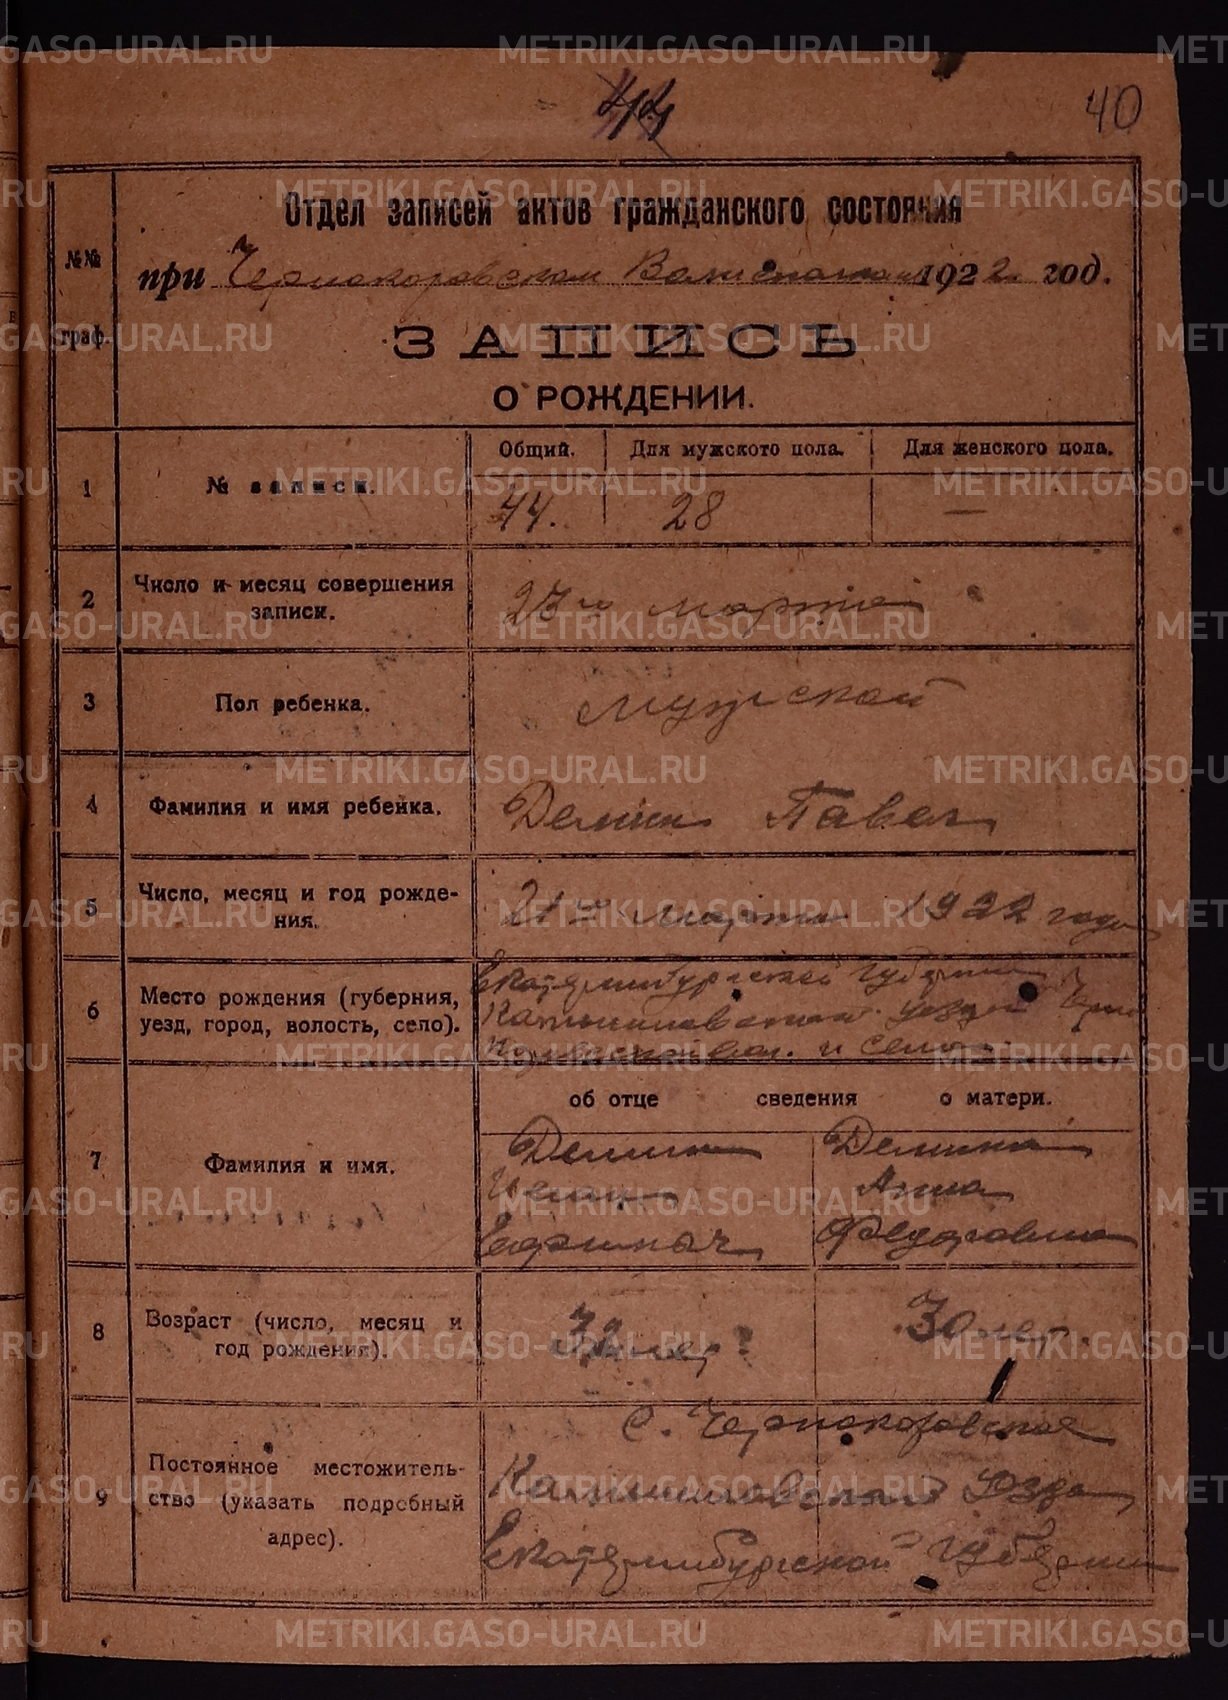 44
40
Отдел записей актов гражданского состояния
при Чернокоровском 1922 год.
ЗАПИСЬ
О РОЖДЕНИИ.
№№ граф.
Общий. Для мужского пола. Для женского пола.
1 № записи. 44. 28 —
2 Число и месяц совершения записи. марта
3 Пол ребенка. Мужской
4 Фамилия и имя ребенка. Демин Павел
5 Число, месяц и год рождения. 21го марта 1922 года
6 Место рождения (губерния, уезд, город, волость, село). Екатеринбургской губернии
Камышловского уезда
вол. и села
об отце сведения о матери.
7 Фамилия и имя. Демин Демина
Анна
Федоровна
8 Возраст (число, месяц и год рождения). 32 лет 30 лет.
9 Постоянное местожительство (указать подробный адрес). С. Чернокоровское
Камышловского уезда
Екатеринбургской губернии
METRIKI.GASO-URAL.RU